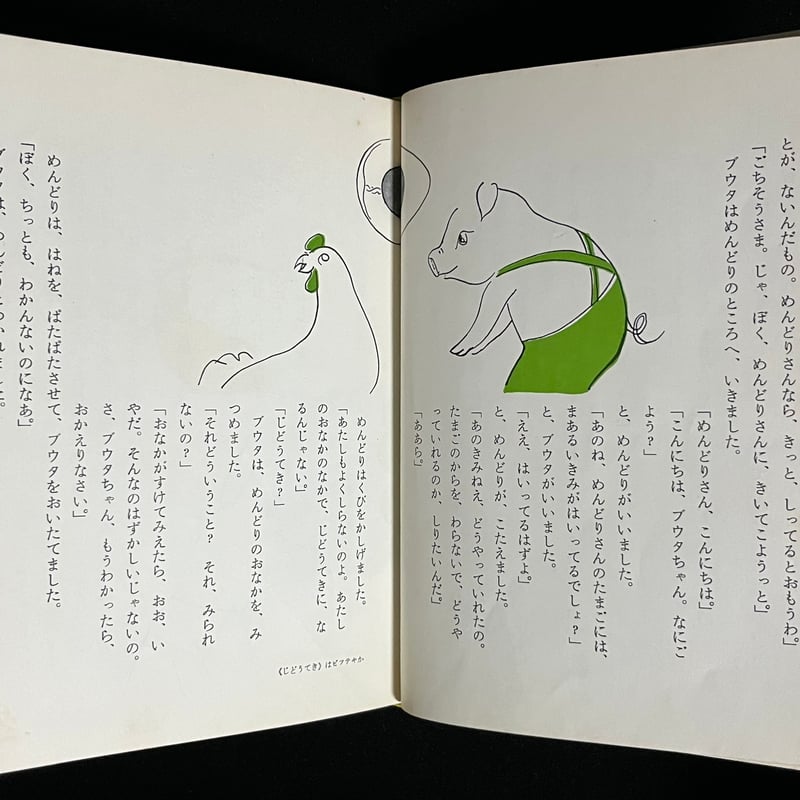 とが、ないんだもの。めんどりさんなら、きっと、しってるとおもうわ。」
「ごちそうさま。じゃ、ぼく、めんどりさんに、きいてこようっと。」
ブウタはめんどりのところへ、いきました。
「めんどりさん、こんにちは。」
「こんにちは、ブウタちゃん。なにご
よう？」
と、めんどりがいいました。
「あのね、めんどりさんのたまごには、
まあるいきみがはいってるでしょ？」
と、ブウタがいいました。
「ええ、はいってるはずよ。」
と、めんどりが、こたえました。
「あのきみねえ、どうやっていれたの。
たまごのからを、わらないで、どうや
っていれるのか、しりたいんだ。」
「ああら。」
めんどりはくびをかしげました。
「あたしもよくしらないのよ。あたし
のおなかのなかで、じどうてきに、な
るんじゃない。」
「じどうてき？」
ブウタは、めんどりのおなかを、み
つめました。
「それどういうこと？　それ、みられ
ないの？」
「おなかがすけてみえたら、おお、い
やだ。そんなのはずかしいじゃないの。
さ、ブウタちゃん、もうわかったら、
おかえりなさい。」
めんどりは、はねを、ばたばたさせて、ブウタをおいたてました。
「ぼく、ちっとも、わかんないのになあ。」
《じどうてき》はビフテキか